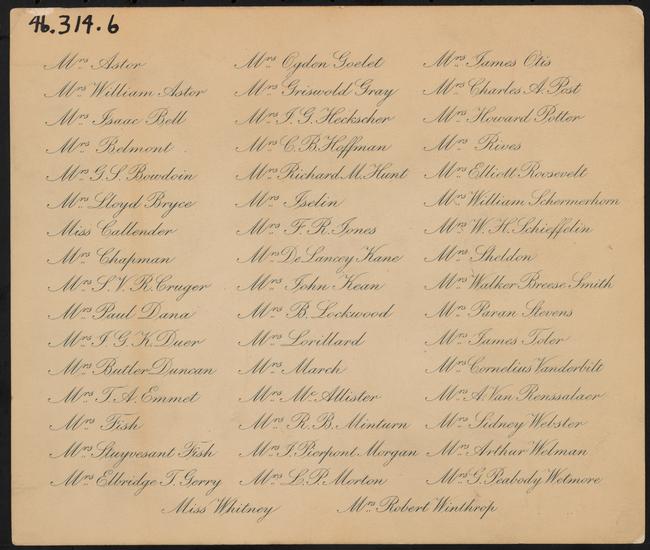 46.314.6
Mrs Astor
Mrs William Astor
Mrs Isaac Bell
Mrs Belmont
Mrs G. S. Bowdoin
Mrs Lloyd Bryce
Miss Callender
Mrs Chapman
Mrs S. V. R. Cruger
Mrs Paul Dana
Mrs J. G. K. Duer
Mrs Butler Duncan
Mrs T. A. Emmet
Mrs Fish
Mrs Stuyvesant Fish
Mrs Elbridge T. Gerry
Mrs Ogden Goelet
Mrs Griswold Gray
Mrs J. G. Heckscher
Mrs C. B. Hoffman
Mrs Richard M. Hunt
Mrs Iselin
Mrs F. R. Jones
Mrs De Lancey Kane
Mrs John Kean
Mrs B. Lockwood
Mrs Lorillard
Mrs March
Mrs Mc Allister
Mrs R. B. Minturn
Mrs J. Pierpont Morgan
Mrs L. P. Morton
Mrs James Otis
Mrs Charles A. Post
Mrs Howard Potter
Mrs Rives
Mrs Elliott Roosevelt
Mrs William Schermerhorn
Mrs W. H. Schieffelin
Mrs Sheldon
Mrs Walker Breese Smith
Mrs Paran Stevens
Mrs James Toler
Mrs Cornelius Vanderbilt
Mrs A. Van Renssalaer
Mrs Sidney Webster
Mrs Arthur Welman
Mrs G. Peabody Wetmore
Miss Whitney
Mrs Robert Winthrop